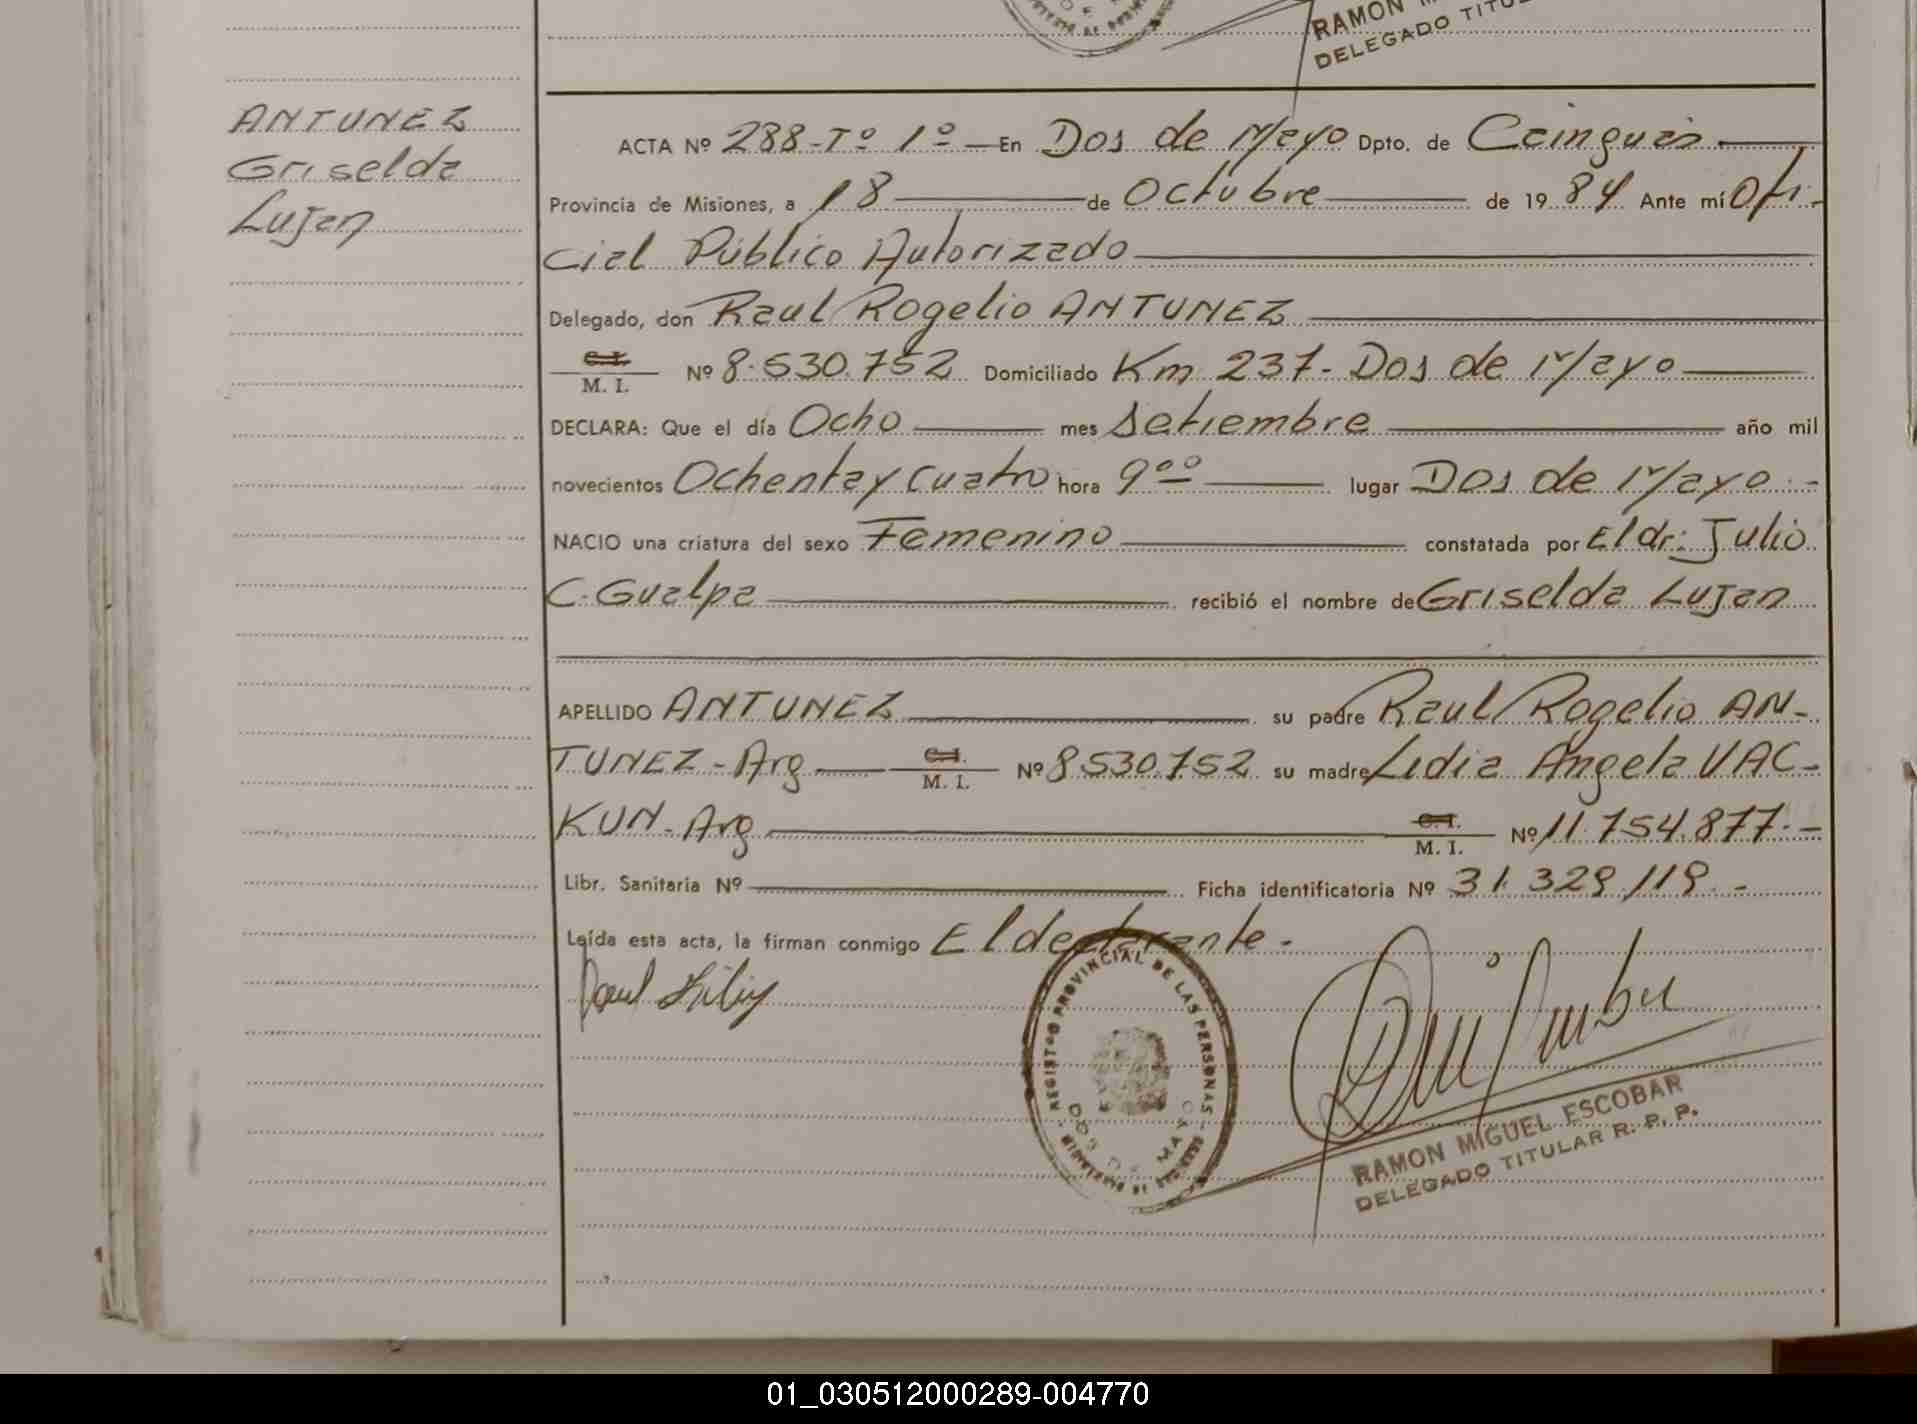 RAMON
DELEGADO TITU
ANTUNEZ
Griselda
Lujan
ACTA Nº 288-Tº 1º — En Dos de Mayo Dpto. de Cainguás
Provincia de Misiones, a 18 de Octubre de 1984 Ante mí Ofi-
cial Público Autorizado
Delegado, don Raul Rogelio ANTUNEZ
C.I.
M. I. Nº 8.530.752 Domiciliado Km 237- Dos de Mayo
DECLARA: Que el día Ocho mes setiembre año mil
novecientos Ochenta y cuatro hora 9ºº lugar Dos de Mayo.-
NACIO una criatura del sexo Femenino constatada por El dr: Julio
C. Gualpa recibió el nombre de Griselda Lujan
APELLIDO ANTUNEZ su padre Raul Rogelio AN-
TUNEZ - Arg C.I. M. I. Nº 8.530.752 su madre Lidia Angela VAC-
KUN - Arg C.I. M. I. Nº 11.754.877.-
Libr. Sanitaria Nº Ficha identificatoria Nº 31.329.119.-
Leída esta acta, la firman conmigo El declarante.-
REGISTRO PROVINCIAL DE LAS PERSONAS
DOS DE MAYO
RAMON MIGUEL ESCOBAR
DELEGADO TITULAR R. P. P.
01_030512000289-004770